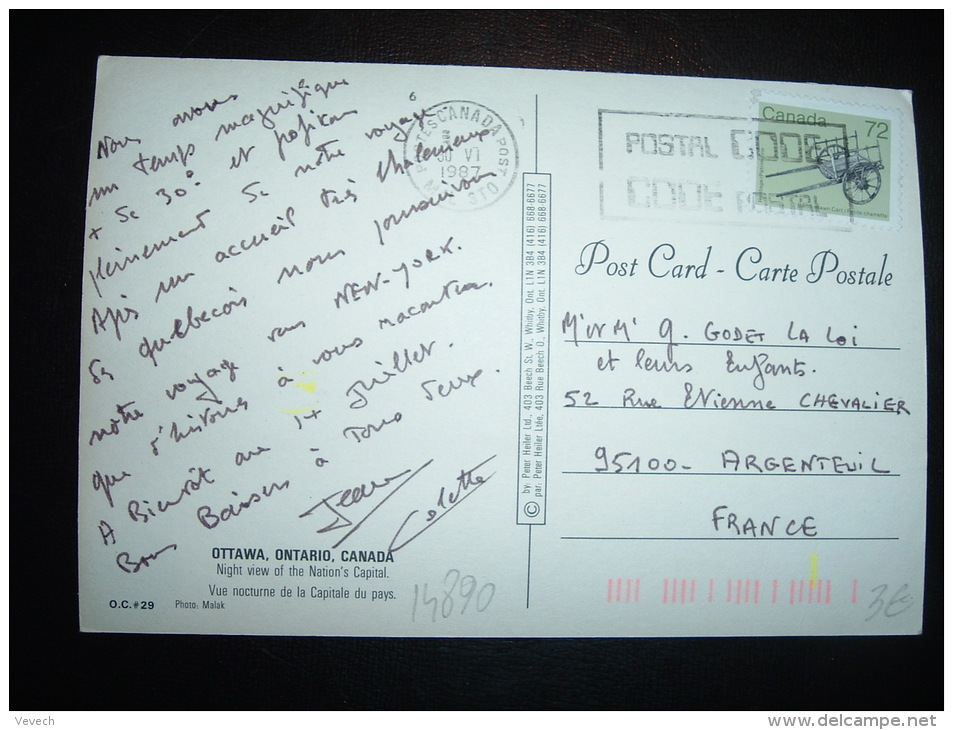 Nous avons
un temps magnifique
+ de 30° et profitons
pleinement de notre voyage
Après un accueil très chaleureux
des québecois nous poursuivons
notre voyage vers NEW-YORK.
que d'histoires à vous raconter.
A Bientôt au 14 Juillet.
Bons Baisers à Tous Deux.
Jean
Colette
OTTAWA, ONTARIO, CANADA
Night view of the Nation's Capital.
Vue nocturne de la Capitale du pays.
O.C.#29 Photo: Malak
14890
© by: Peter Heiler Ltd., 403 Beech St. W., Whitby, Ont. L1N 3B4 (416) 668-6677
par: Peter Heiler Ltée, 403 Rue Beech O., Whitby, Ont. L1N 3B4 (416) 668-6677
POSTES CANADA POST
30 VI
1987
POSTAL CODE
CODE POSTAL
Canada 72
Post Card - Carte Postale
GODET LA LOI
et leurs Enfants.
52 Rue Etienne CHEVALIER
95100- ARGENTEUIL
FRANCE
3€
Vevech
delcampe.net